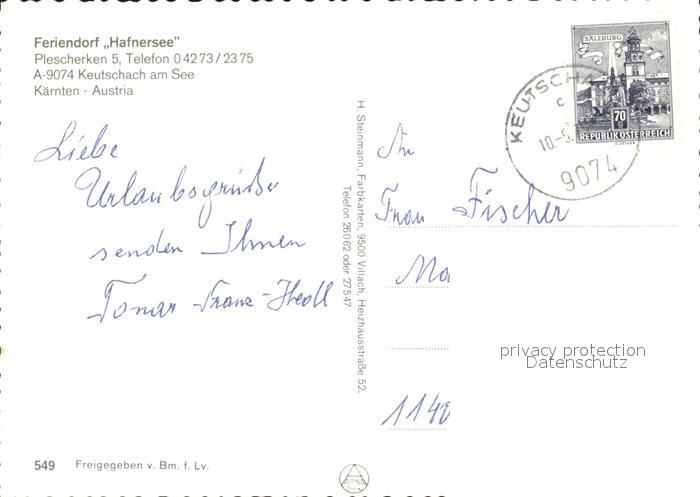 Feriendorf „Hafnersee"
Plescherken 5, Telefon 0 42 73 / 23 75
A-9074 Keutschach am See
Kärnten - Austria
Liebe
Urlaubsgrüße
senden Ihnen
Franz
549 Freigegeben v. Bm. f. Lv.
H. Steinmann, Farbkarten, 9500 Villach, Heizhausstraße 52,
Telefon 26062 oder 27547
SALZBURG
70
REPUBLIK ÖSTERREICH
KEUTSCHA
c
9074
An
Frau Fischer
privacy protection
Datenschutz